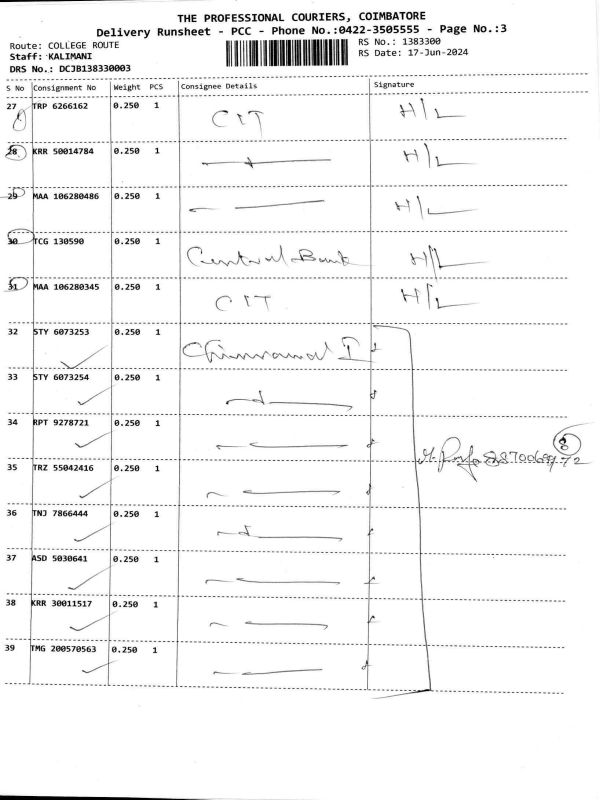 THE PROFESSIONAL COURIERS, COIMBATORE
Delivery Runsheet - PCC - Phone No.:0422-3505555 - Page No.:3
Route: COLLEGE ROUTE
RS No.: 1383300
Staff: KALIMANI
RS Date: 17-Jun-2024
DRS No.: DCJB138330003
S No Consignment No Weight PCS Consignee Details Signature
27 TRP 6266162 0.250 1 CIT H/L
28 KRR 50014784 0.250 1 H/L
29 MAA 106280486 0.250 1 H/L
30 TCG 130590 0.250 1 Central Bank H/L
31 MAA 106280345 0.250 1 CIT H/L
32 STY 6073253 0.250 1
33 STY 6073254 0.250 1
34 RPT 9278721 0.250 1
35 TRZ 55042416 0.250 1
36 TNJ 7866444 0.250 1
37 ASD 5030641 0.250 1
38 KRR 30011517 0.250 1
39 TMG 200570563 0.250 1